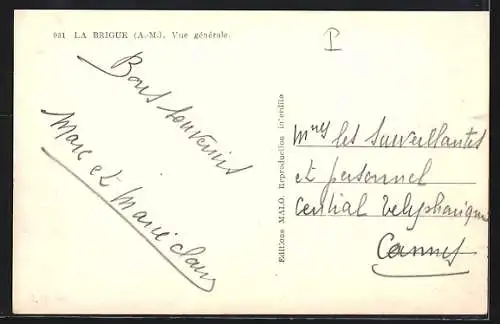 931 LA BRIGUE (A.-M.). Vue générale.
Bons souvenirs
Marc et Marie Claire
Editions MALO. Reproduction interdite
P
Mmes les Surveillantes
et personnel
Central téléphonique
Cannes